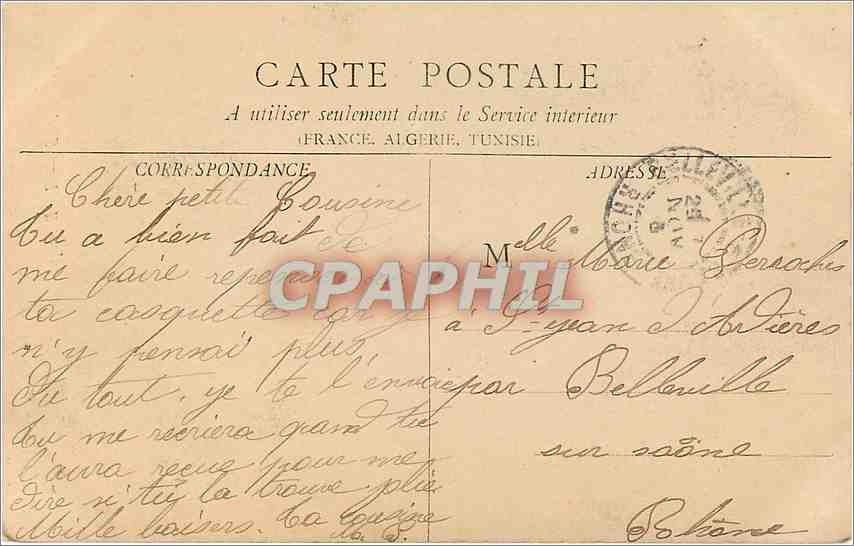 CARTE POSTALE
A utiliser seulement dans le Service interieur
(FRANCE, ALGERIE, TUNISIE)
CORRESPONDANCE
Chère petite Cousine
tu a bien fait de
me faire repenser a
ta casquette car je
n'y pensai plus
Du tout, je te l'envoie
tu me recriera quand tu
l'aura recue pour me
dire si tu la trouve jolie
Mille baisers. ta cousine
ADRESSE
BELLEVILLE
RHONE
Melle Marie
à St Jean d'Ardières
par Belleville
sur saône
Rhône
CPAPHIL